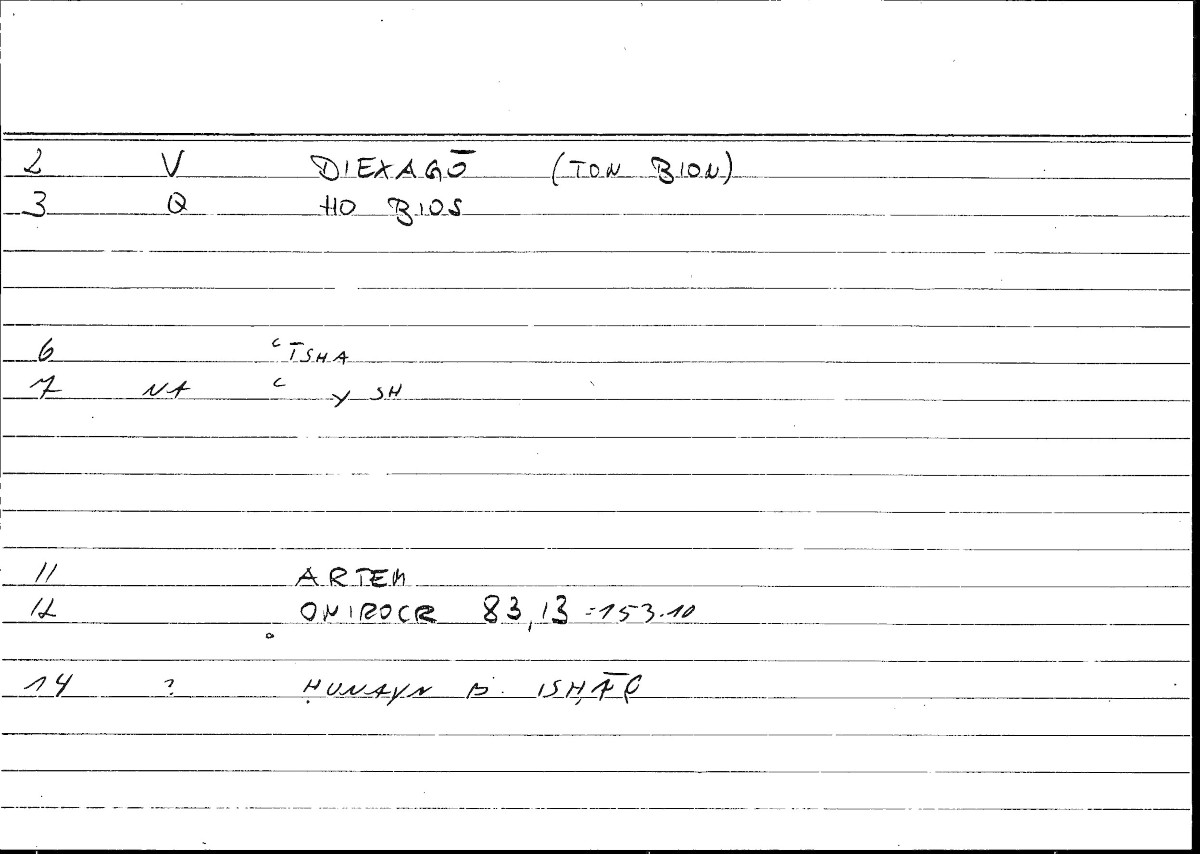 2 V DIEXAGŌ (TON BION)
3 Q HO BIOS
6 ʿĪSHA
7 NA ʿ Y SH
11 ARTEM
12 ONIROCR 83,13 = 153.10
14 ? ḤUNAYN B. ISḤĀQ